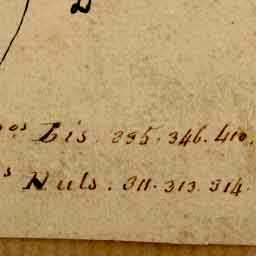 D
os Lis. 295. 346. 410.
s Nuls. 311. 313. 314.